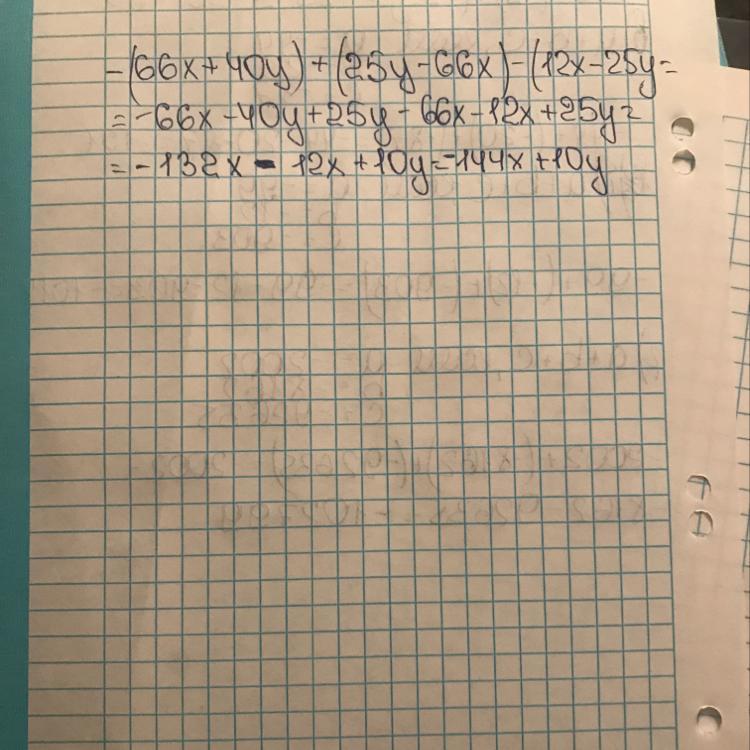 -(66x+40y)+(25y-66x)-(12x-25y=
=-66x-40y+25y-66x-12x+25y=
=-132x-12x+10y=-144x+10y